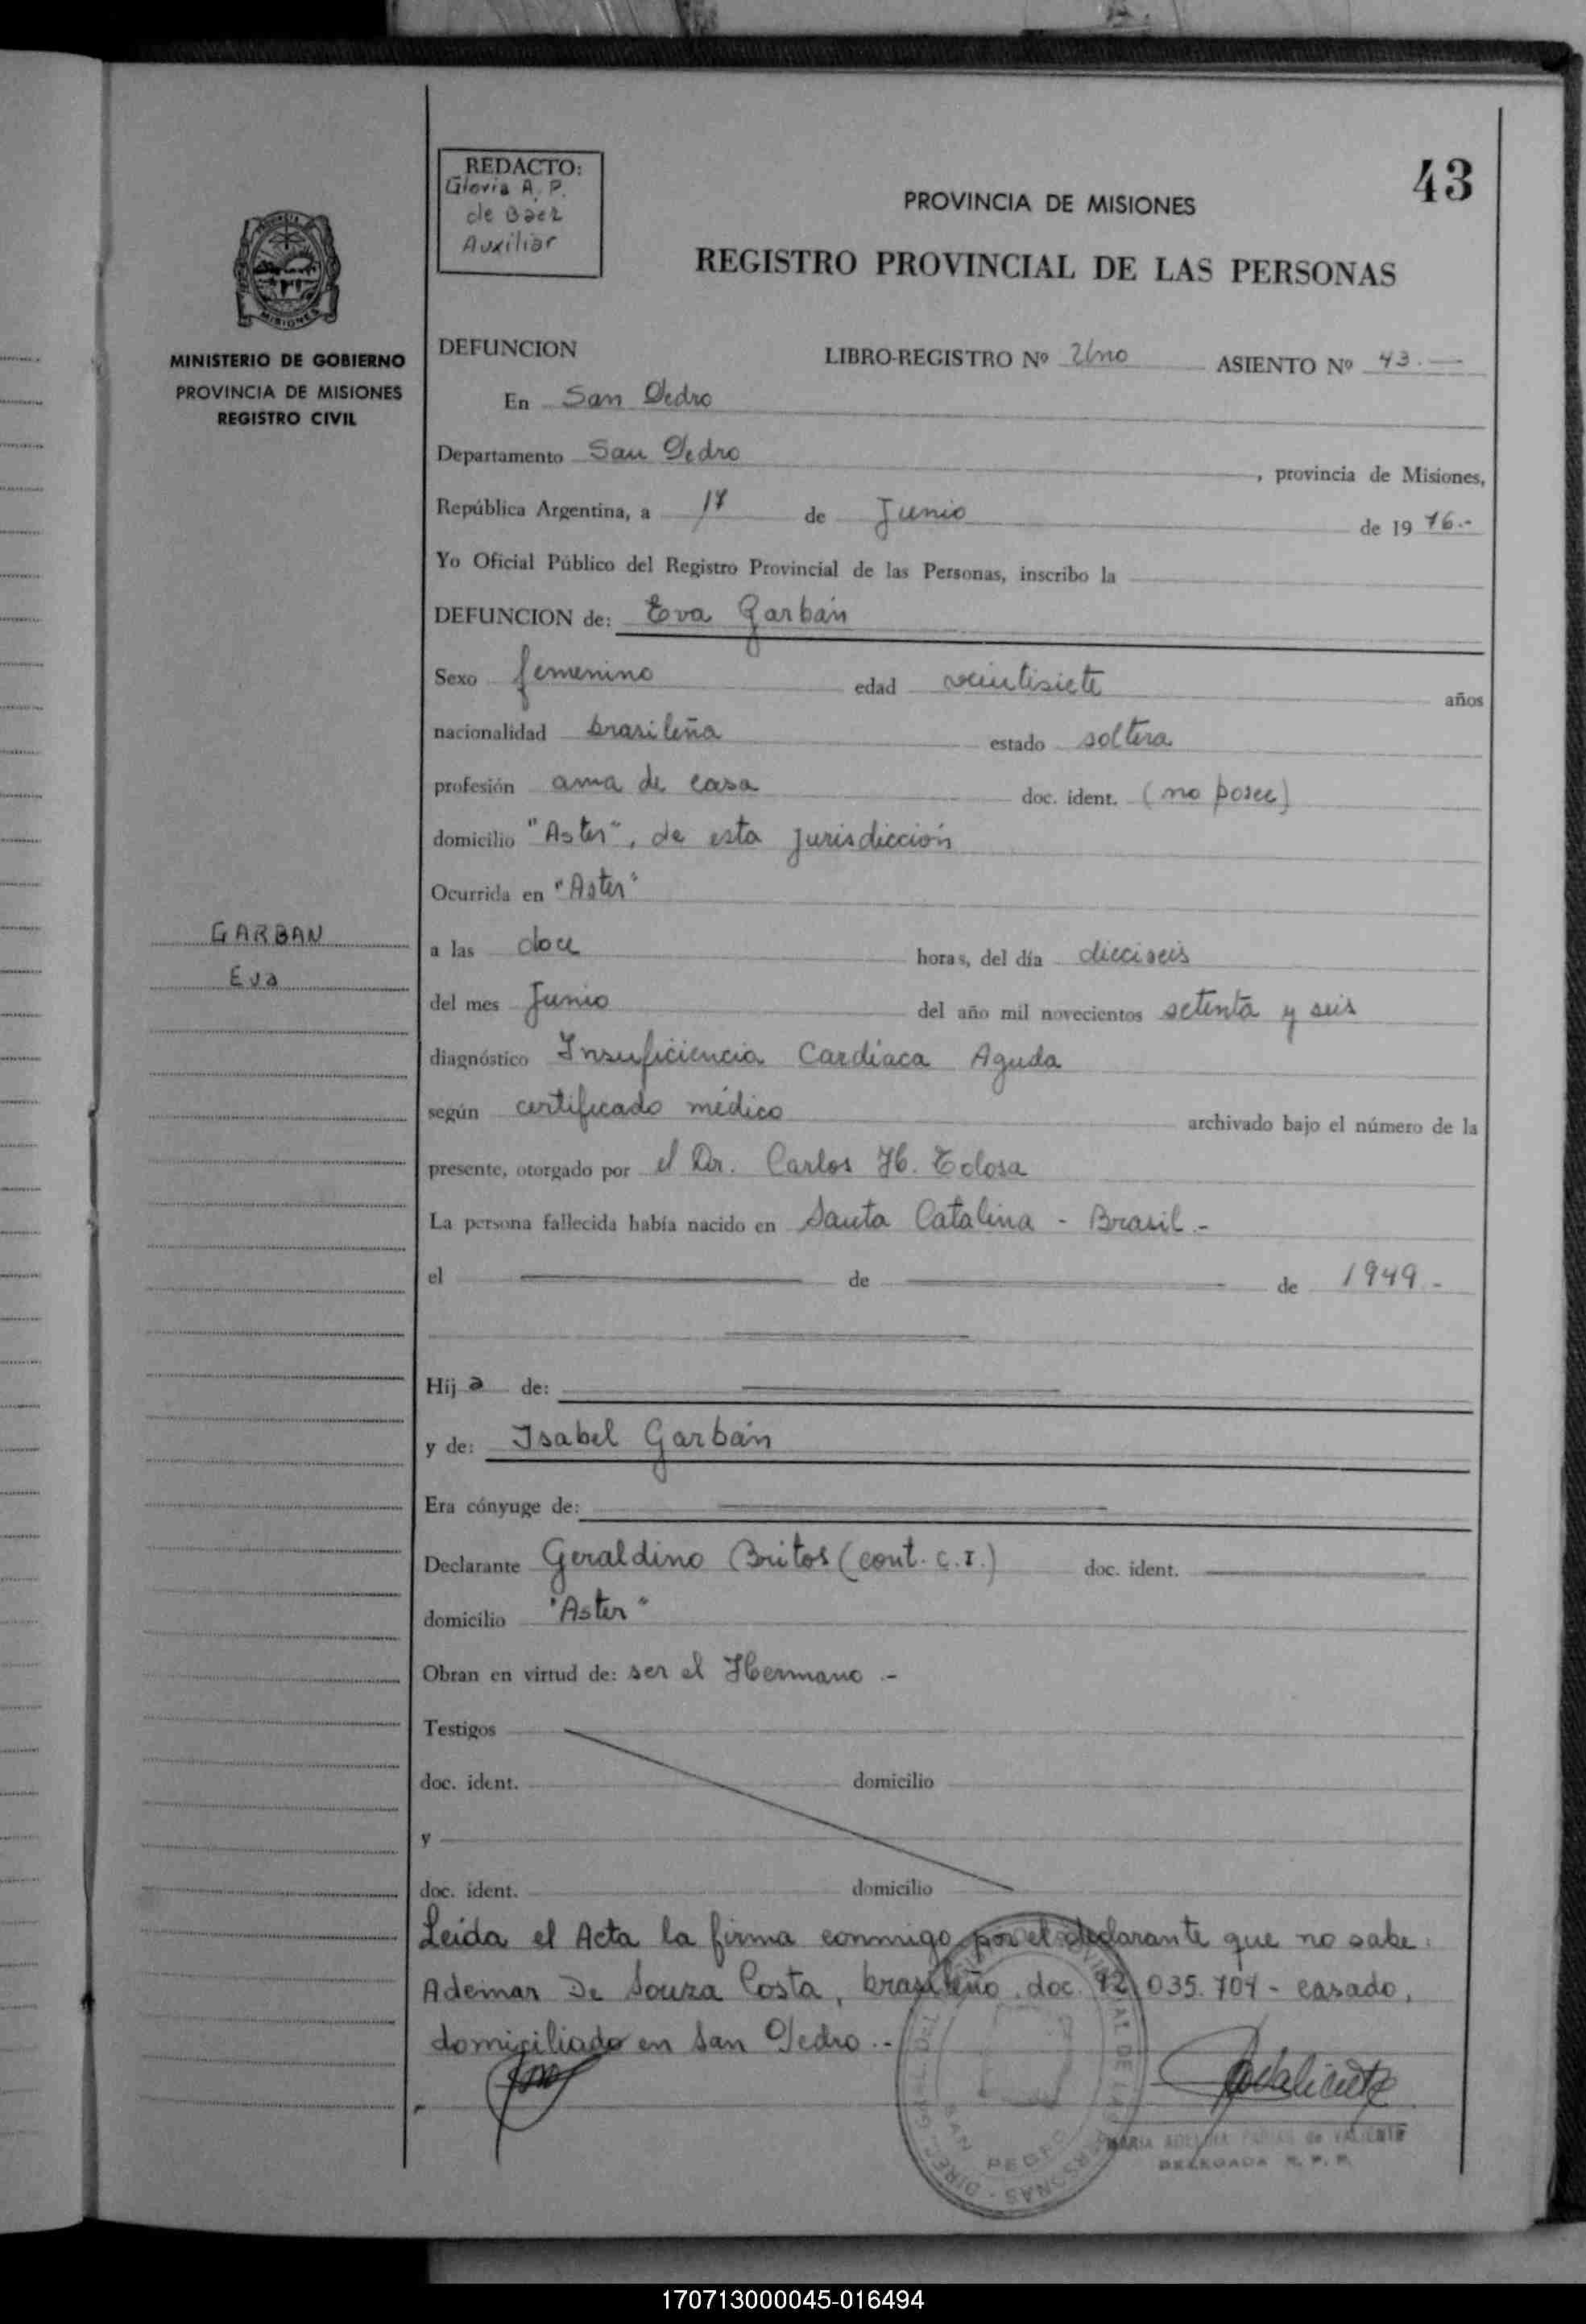 43
REDACTO:
Gloria A. P.
de Baez
Auxiliar
PROVINCIA DE MISIONES
REGISTRO PROVINCIAL DE LAS PERSONAS
MISIONES
MINISTERIO DE GOBIERNO
PROVINCIA DE MISIONES
REGISTRO CIVIL
GARBAN
Eva
DEFUNCION LIBRO-REGISTRO Nº Uno ASIENTO Nº 43.—
En San Pedro
Departamento San Pedro, provincia de Misiones,
República Argentina, a 17 de Junio de 1976.-
Yo Oficial Público del Registro Provincial de las Personas, inscribo la
DEFUNCION de: Eva Garbán
Sexo femenino edad veintisiete años
nacionalidad brasileña estado soltera
profesión ama de casa doc. ident. (no posee)
domicilio "Aster", de esta jurisdicción
Ocurrida en "Aster"
a las doce horas, del día dieciseis
del mes Junio del año mil novecientos setenta y seis
diagnóstico Insuficiencia Cardíaca Aguda
según certificado médico archivado bajo el número de la
presente, otorgado por el Dr. Carlos H. Tolosa
La persona fallecida había nacido en Santa Catalina - Brasil.-
el — de — de 1949.-
Hija de: —
y de: Isabel Garbán
Era cónyuge de: —
Declarante Geraldino Britos (cont. c.I.) doc. ident. —
domicilio "Aster"
Obran en virtud de: ser el Hermano.-
Testigos
doc. ident. domicilio
y
doc. ident. domicilio
Leída el Acta la firma conmigo por el declarante que no sabe:
Ademar De Souza Costa, brasileño, doc. 92.035.704 - casado,
domiciliado en San Pedro.-
SAN PEDRO
MARIA ADELINA de VALIENTE
DELEGADA R. P. P.
170713000045-016494